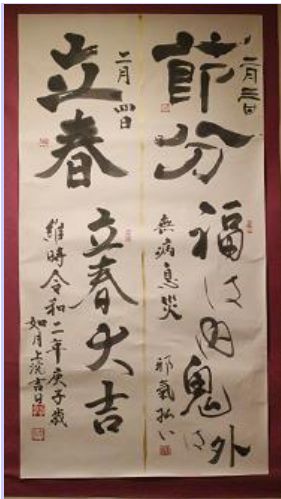 二月三日
節分
福は内鬼は外
無病息災
邪気払い
二月四日
立春
立春大吉
維時令和二年庚子歳
如月上浣吉日